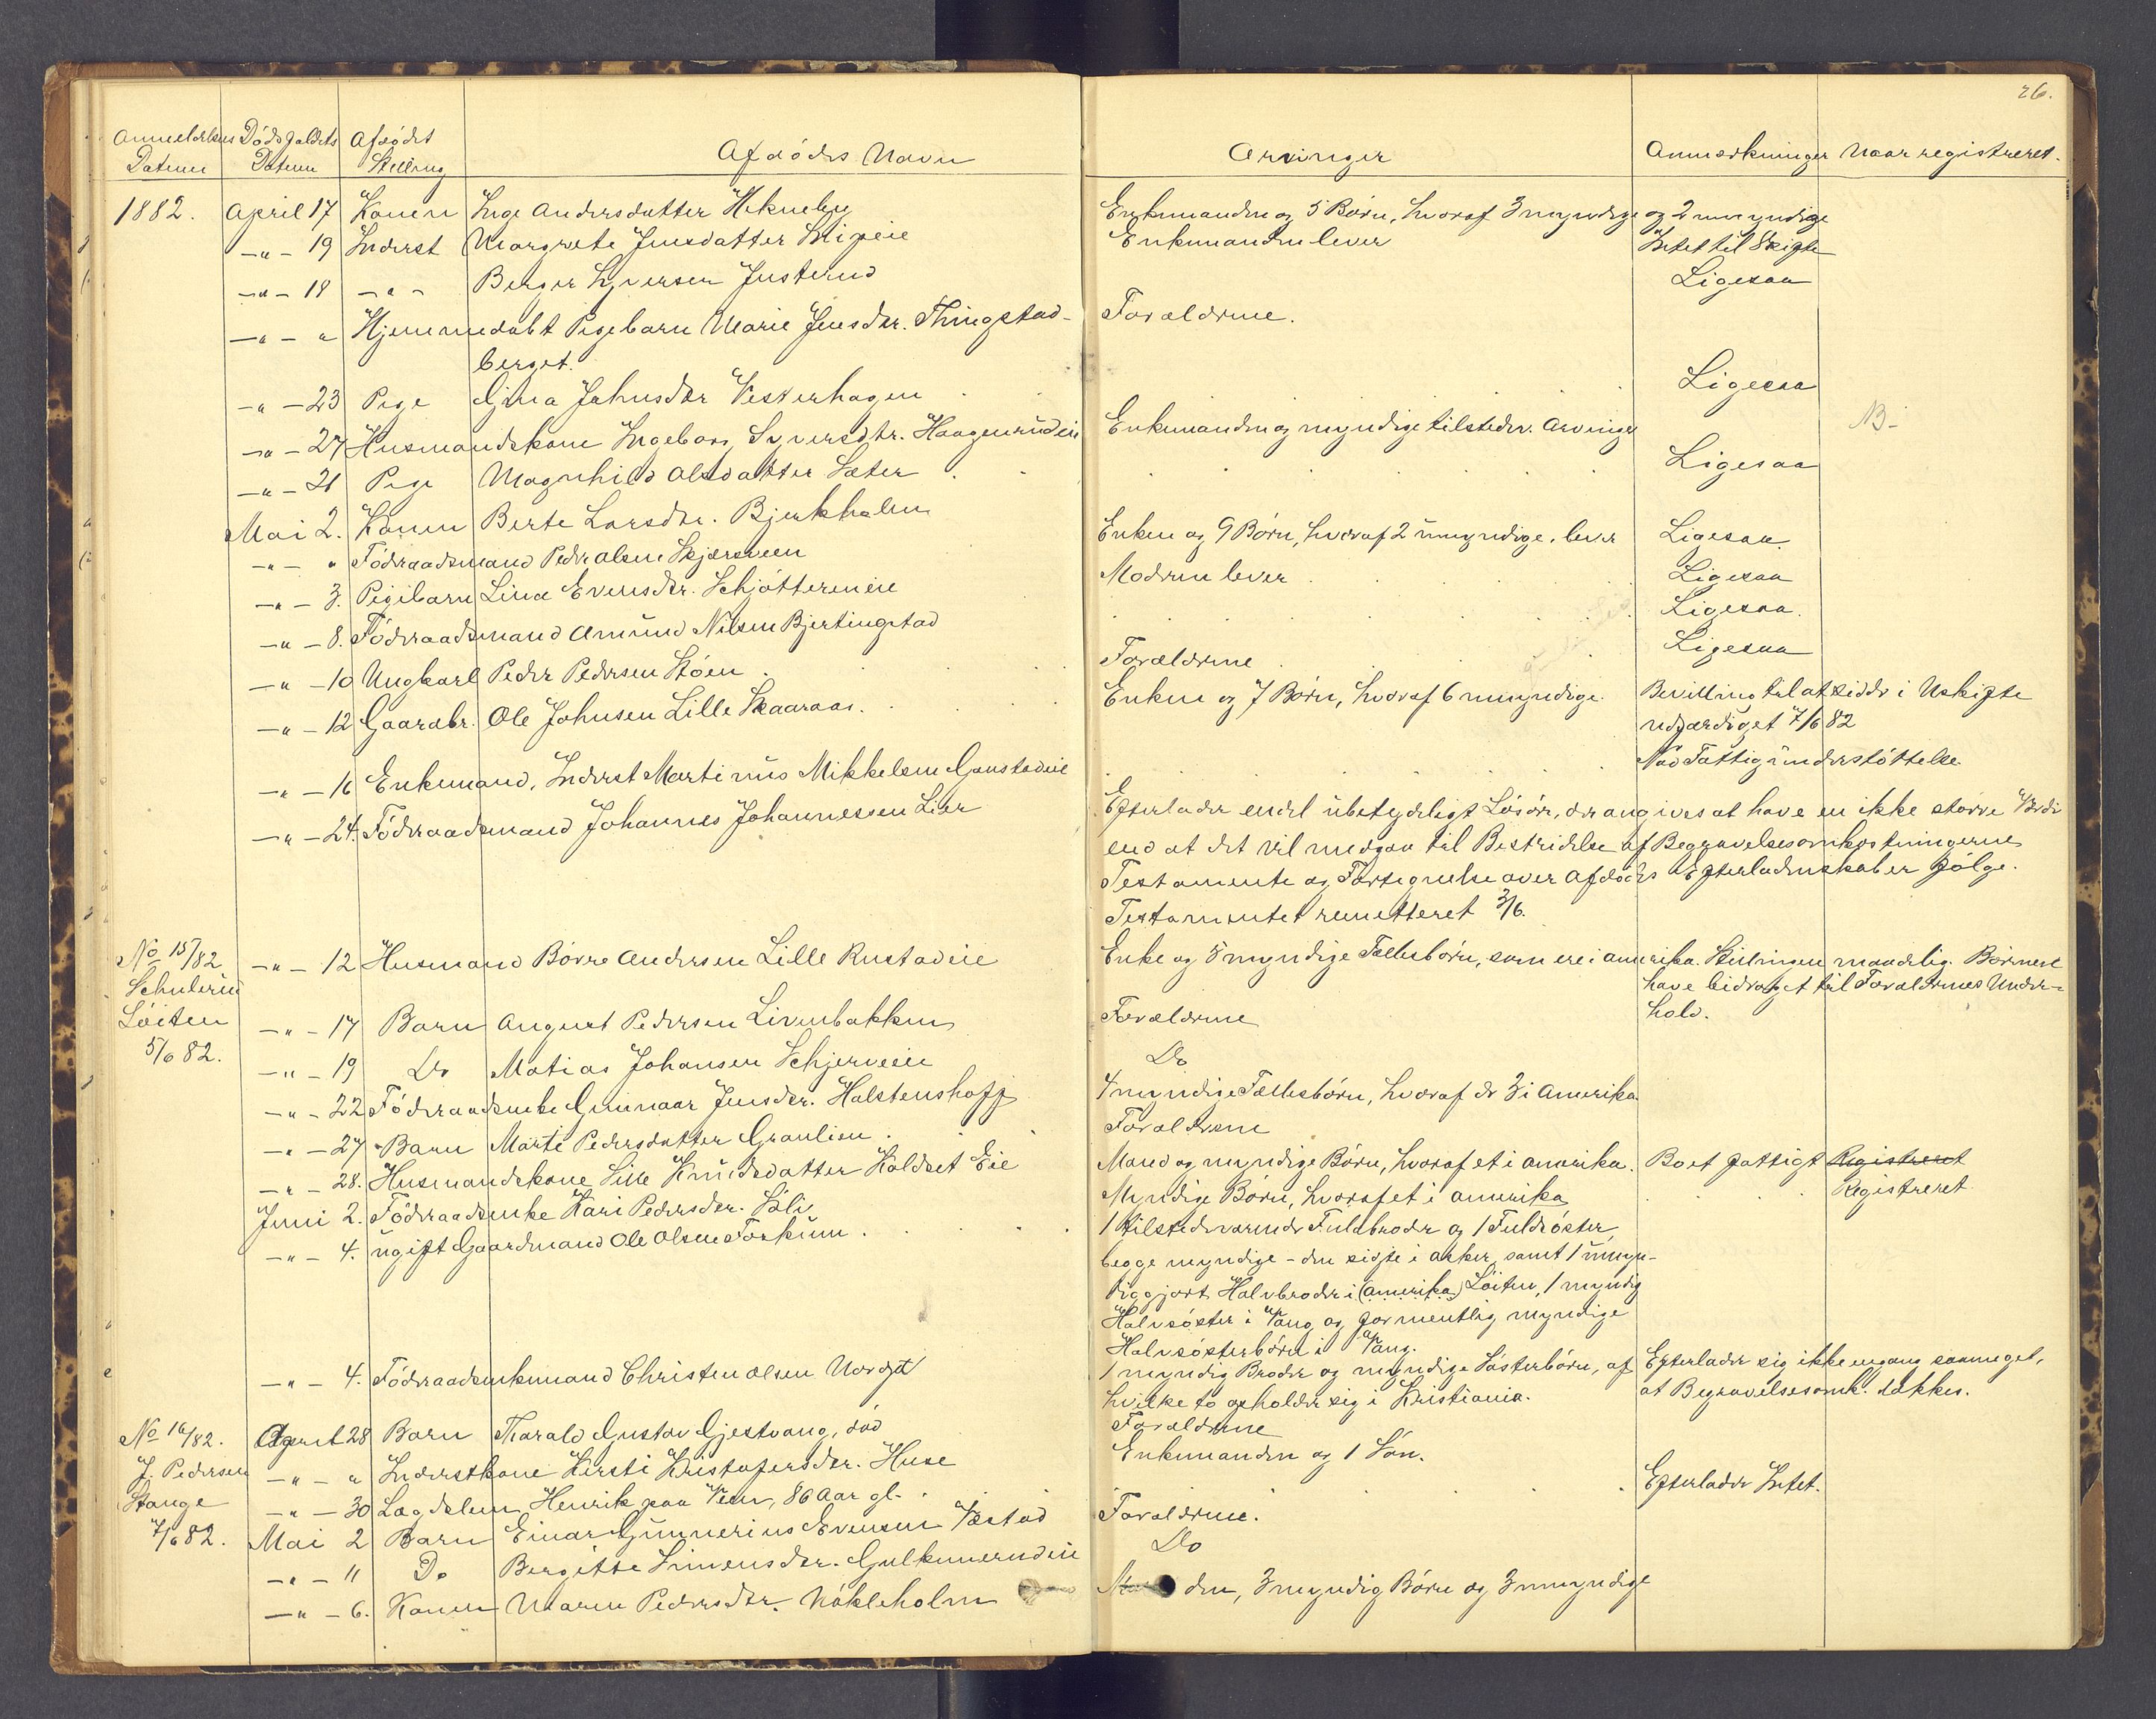 26.
Anmeldelsens Dødsfaldets Afdødes
Datum Datum Stilling Afdødes Navn Arvinger Anmærkninger Naar registreret.
1882. April 17 Konen Inge Andersdatter Hekneby Enkemanden og 5 Børn, hvoraf 3 myndige og 2 umyndige
-"- 19 Inderst Margrete Jensdatter Enkemanden lever Intet til Skifte
-"- 18 -"- Berger Syversen Justerud Ligesaa
-"- " Hjemmedøbt Pigebarn Marie Jensdtr. Thingstad- Forældrene.
berget.
-"- 23 Pige Gina Johnsdtr Vesterhagen Ligesaa
-"- 27 Husmandskone Ingeborg Syversdtr. Haagenrudeie Enkemanden og myndige tilstedev. Arvinger NB-
-"- 21 Pige Magnhild Olsdatter Sæter Ligesaa
Mai 2. Konen Berte Larsdtr. Bjerkholm
-"- " Föderaadsmand Peder Olsen Skjærsveen Enken og 9 Børn, hvoraf 2 umyndige, lever Ligesaa
-"- 3. Pigebarn Lina Evensdtr. Schjøttereneie Moderen lever Ligesaa
-"- 8. Föderaadsmand Amund Nilsen Bjertingstad Ligesaa.
-"- 10 Ungkarl Peder Pedersen Støen Forældrene Ligesaa
-"- 12 Gaardbr. Ole Johnsen Lille Skaaraas. Enken og 7 Børn, hvoraf 6 umyndige. Bevilling til at sidde i Uskifte
udfærdiget 7/6 82
-"- 16 Enkemand, Inderst Martinus Mikkelsen Gaustadeie Nød Fattigunderstøttelse
-"- 24. Föderaadsmand Johannes Johannessen Lier Efterlader endel ubetydeligt Løsøre, der angives at have en ikke større Værdi
end at det vil medgaa til Bestridelse af Begravelsesomkostningerne
Testamente og Fortegnelse over Afdødes Efterladenskaber følge.
Testamentet remitteret 3/6.
No 15/82 -"- 12 Husmand Børre Andersen Lille Rustadeie Enke og 5 myndige Fællesbørn, som ere i Amerika. Stillingen maadelig. Børnene
Schulerud have bidraget til Forældrenes Under-
Løiten -"- 17 Barn August Pedersen Livenbakken Forældrene hold.
5/6 82. -"- 19 Do Matias Johansen Schjerveeie Do
-"- 22 Föderaadsenke Gunnaar Jensdtr. Halstenshoff 4 myndige Fællesbørn, hvoraf de 3 i Amerika
-"- 27 Barn Marte Pedersdatter Graulien Forældrene
-"- 28. Husmandskone Sille Knudsdatter Koldset Eie Mand og myndige Børn, hvoraf et i Amerika. Boet fattigt Registreret
Juni 2. Föderaadsenke Kari Pedersdtr. Søli Myndige Børn, hvoraf et i Amerika Registreret
-"- 4. ugift Gaardmand Ole Olsen Torkum 1 tilstedeværende Fuldbroder og 1 Fuldsøster,
begge myndige - den sidste i Asker, samt 1 umyn-
diggjort Halvbroder i (Amerika) Løiten, 1 myndig
Halvsøster i Vang og formentlig myndige
Halvsøsterbørn i Vang.
-"- 4. Föderaadsenkemand Christen Olsen 1 myndig Broder og myndige Søsterbørn, af Efterlader sig ikke engang saameget,
hvilke to opholder sig i Kristiania. at Begravelsesomk. dækkes.
No 16/82. April 28 Barn Tharald Gustav Gjestvang, død Forældrene
J. Pedersen -"- " Inderstkone Kirsti Kristofersdtr. Huse Enkemanden og 1 Søn.
Stange -"- 30 Lægdslem Henrik paa Veen, 86 Aar gl. Efterlader Intet.
7/6 82. Mai 2 Barn Einar Gunnerius Evensen Vestad Forældrene.
-"- 11 Do Bergitte Simensdtr. Gulkmerudeie Do
-"- 6. Konen Maren Pedersdtr. Nökleholm den, 3 myndig Børn og 3 umyndige